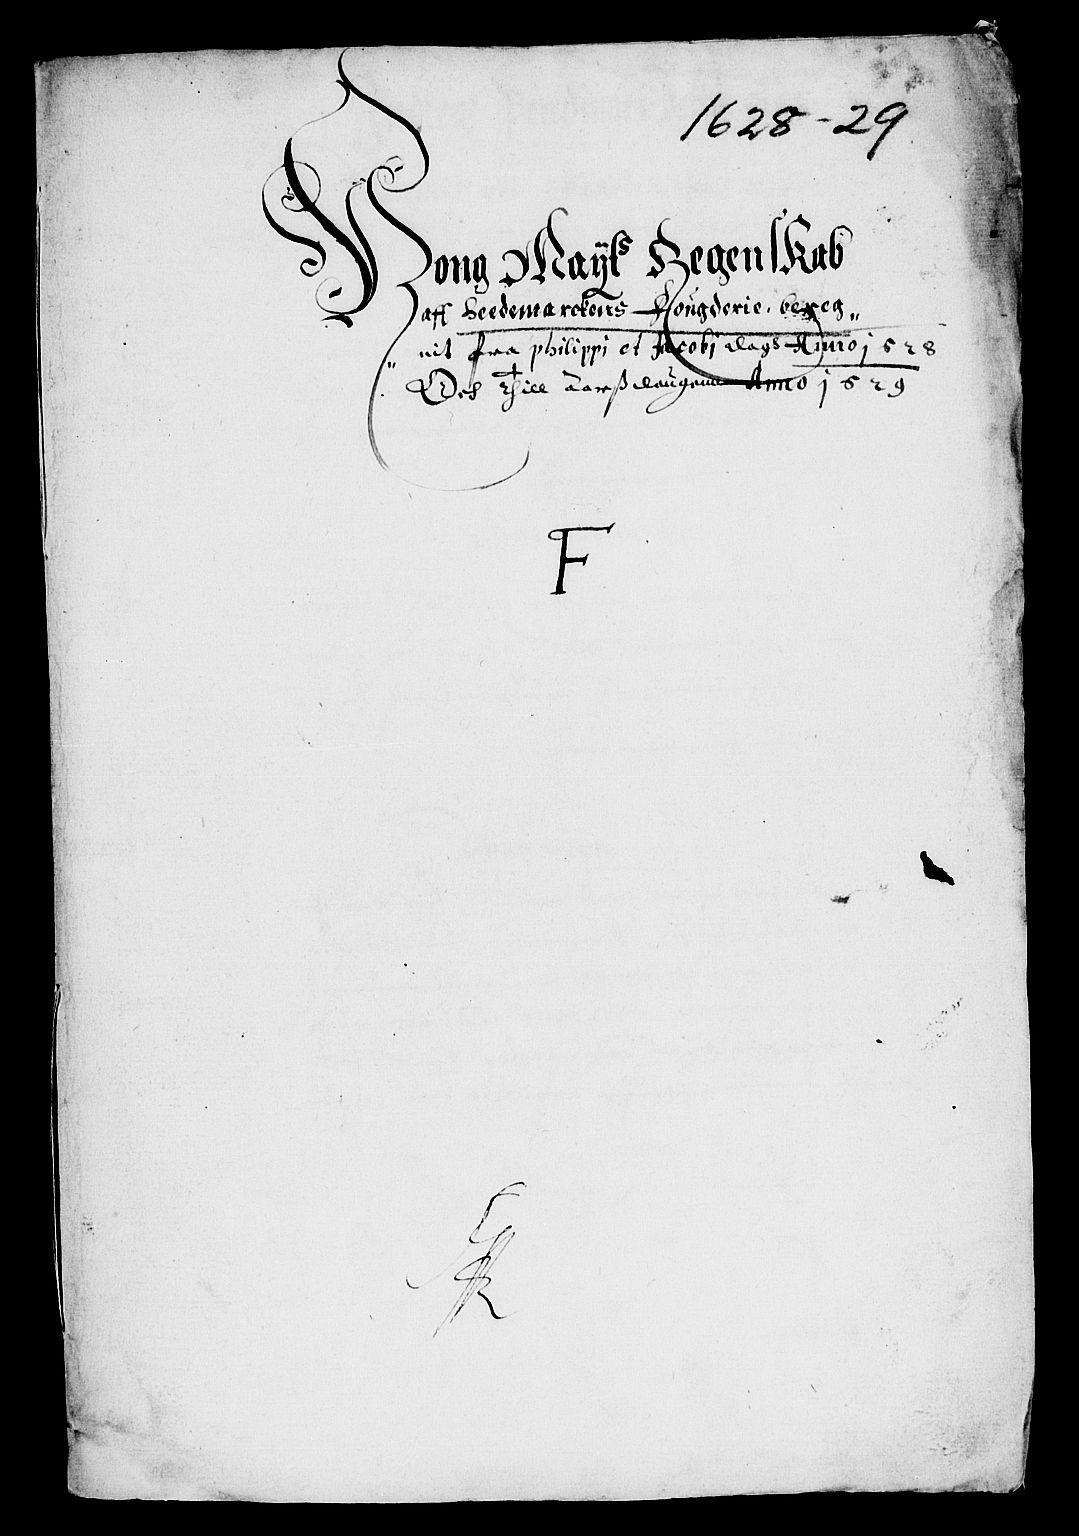 1628-29
Kong Mayts Regenskab
aff Hedemarckens Fougderie, bereg„
„nit fra Philippi et Jacobi dags Anno 1628
Och thill Aarsdaugenn Anno 1629
F